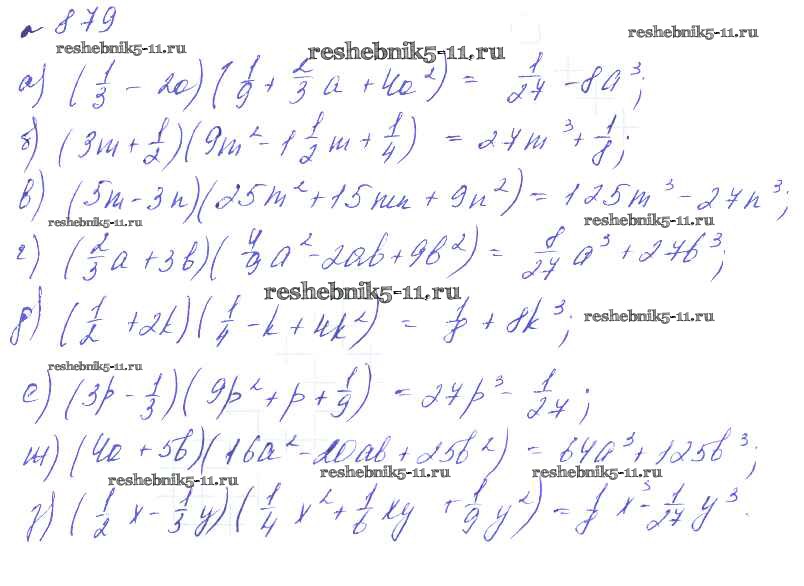 № 879
reshebnik5-11.ru reshebnik5-11.ru reshebnik5-11.ru
а) (1/3 - 2a)(1/9 + 2/3 a + 4a²) = 1/27 - 8a³;
б) (3m + 1/2)(9m² - 1 1/2 m + 1/4) = 27m³ + 1/8;
в) (5m - 3n)(25m² + 15mn + 9n²) = 125m³ - 27n³;
reshebnik5-11.ru reshebnik5-11.ru
г) (2/3 a + 3b)(4/9 a² - 2ab + 9b²) = 8/27 a³ + 27b³;
reshebnik5-11.ru
д) (1/2 + 2k)(1/4 - k + 4k²) = 1/8 + 8k³;
reshebnik5-11.ru
reshebnik5-11.ru
е) (3p - 1/3)(9p² + p + 1/9) = 27p³ - 1/27;
ж) (4a + 5b)(16a² - 20ab + 25b²) = 64a³ + 125b³;
reshebnik5-11.ru reshebnik5-11.ru reshebnik5-11.ru
з) (1/2 x - 1/3 y)(1/4 x² + 1/6 xy + 1/9 y²) = 1/8 x³ - 1/27 y³.